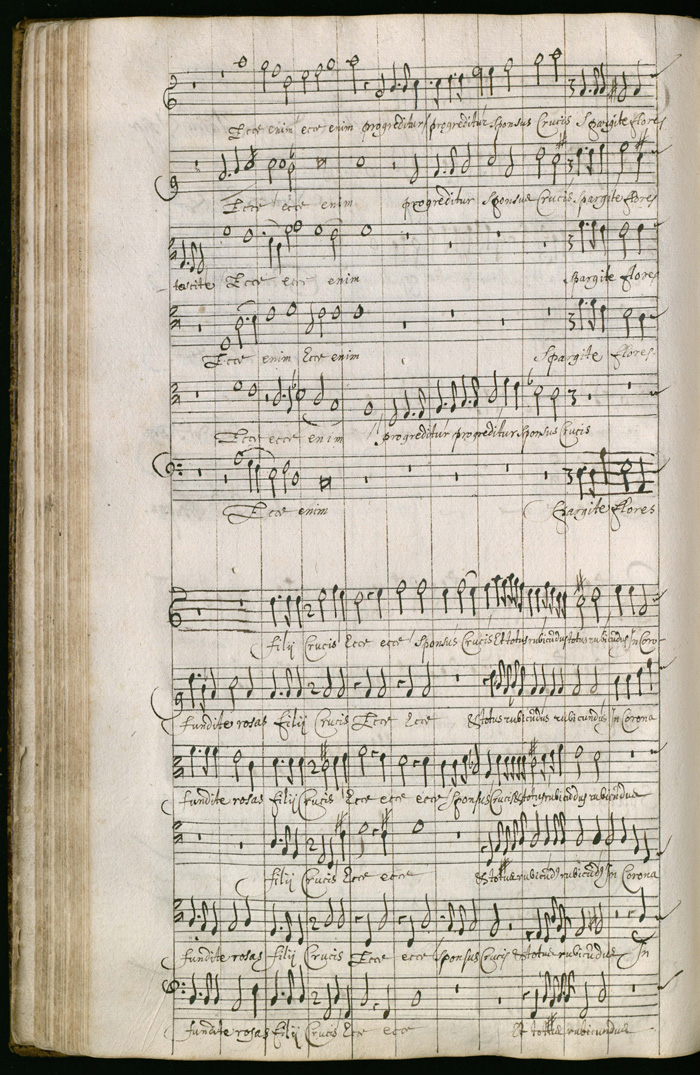 Ecce enim ecce enim progreditur progreditur Sponsus Crucis Spargite flores
Ecce ecce enim progreditur Sponsus Crucis Spargite flores
tescite Ecce ecce enim Spargite flores
Ecce enim Ecce enim Spargite flores
Ecce ecce enim progreditur progreditur Sponsus Crucis
Ecce enim Spargite flores
filij Crucis Ecce ecce Sponsus Crucis Et totus rubicũdus totus rubicũdus In Coro-
fundite rosas filij Crucis Ecce Ecce & totus rubicũdus rubicũdus In Corona
fundite rosas filij Crucis Ecce ecce ecce Sponsus Crucis & totus rubicũdus rubicũdus
filij Crucis Ecce ecce & totus rubicũd9 rubicũd9 In Corona
fundite rosas filij Crucis Ecce ecce Sponsus Crucis & totus rubicũdus In
fundite rosas filij Crucis Ecce ecce Et totus rubicundus